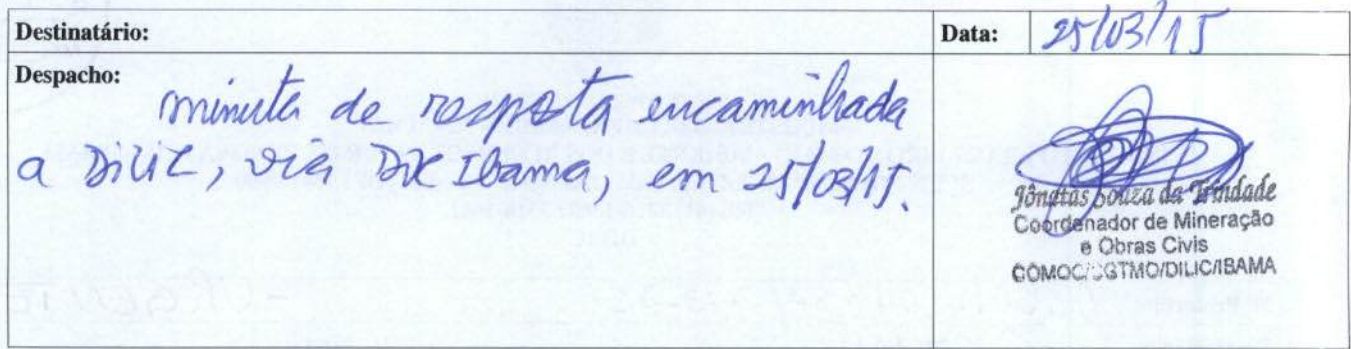 Destinatário:
Data: 25/03/15
Despacho:
minuta de resposta encaminhada
a DILIC, via Doc Ibama, em 25/03/15.
Jônatas Souza da Trindade
Coordenador de Mineração
e Obras Civis
COMOC/CGTMO/DILIC/IBAMA